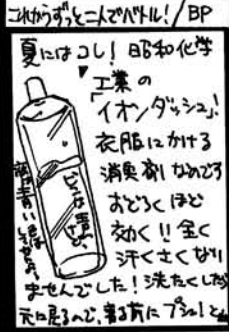 これからずっと二人でバトル!/BP
夏にはコレ! 昭和化学
工業の
「イオンダッシュ」!
衣服にかける
消臭剤なのです
おどろくほど
効く!!全く
汗くさくなり
ませんでした!洗たくしたら
元に戻るので、着る前にプシュ!と